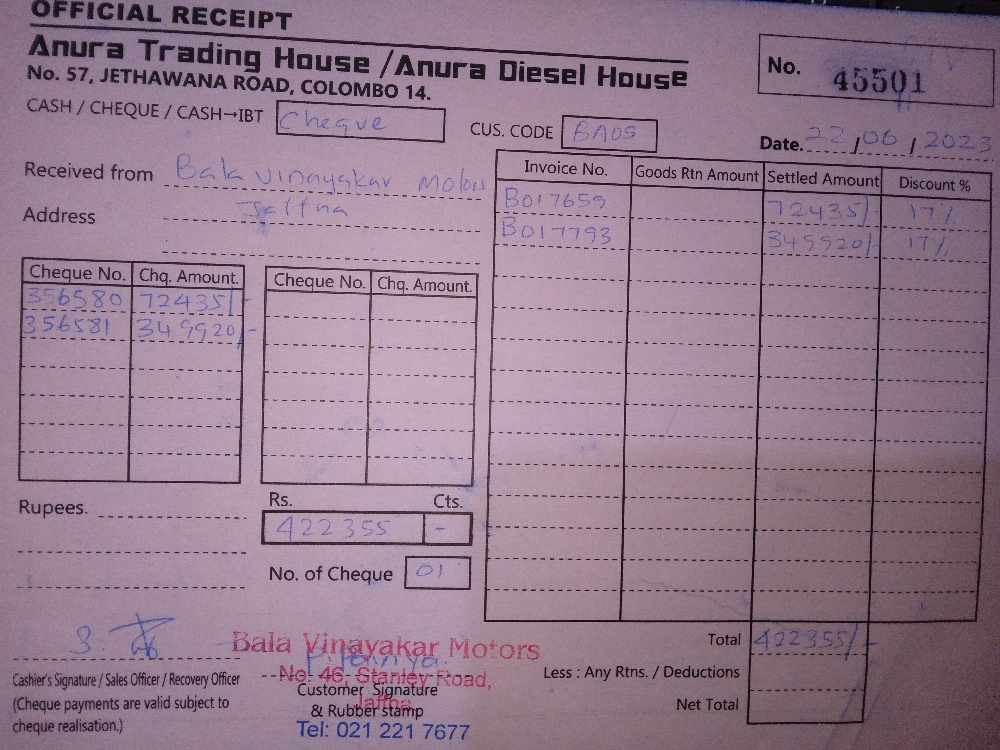 OFFICIAL RECEIPT
Anura Trading House /Anura Diesel House
No. 57, JETHAWANA ROAD, COLOMBO 14.
No. 45501
CASH / CHEQUE / CASH→IBT Cheque
CUS. CODE BA05
Date. 22 / 06 / 2023
Received from Bala vinayakar Motors
Address Jaffna
Invoice No. Goods Rtn Amount Settled Amount Discount %
B017659 72435/- 17%
B017793 349920/- 17%
Cheque No. Chq. Amount. Cheque No. Chq. Amount.
356580 72435/-
356581 349920/-
Rupees.
Rs. Cts.
422355 -
No. of Cheque 01
Total 422355/-
Less : Any Rtns. / Deductions
Net Total
S.
Cashier's Signature / Sales Officer / Recovery Officer
(Cheque payments are valid subject to
cheque realisation.)
Bala Vinayakar Motors
No. 46, Stanley Road,
Jaffna
Customer Signature
& Rubber stamp
Tel: 021 221 7677